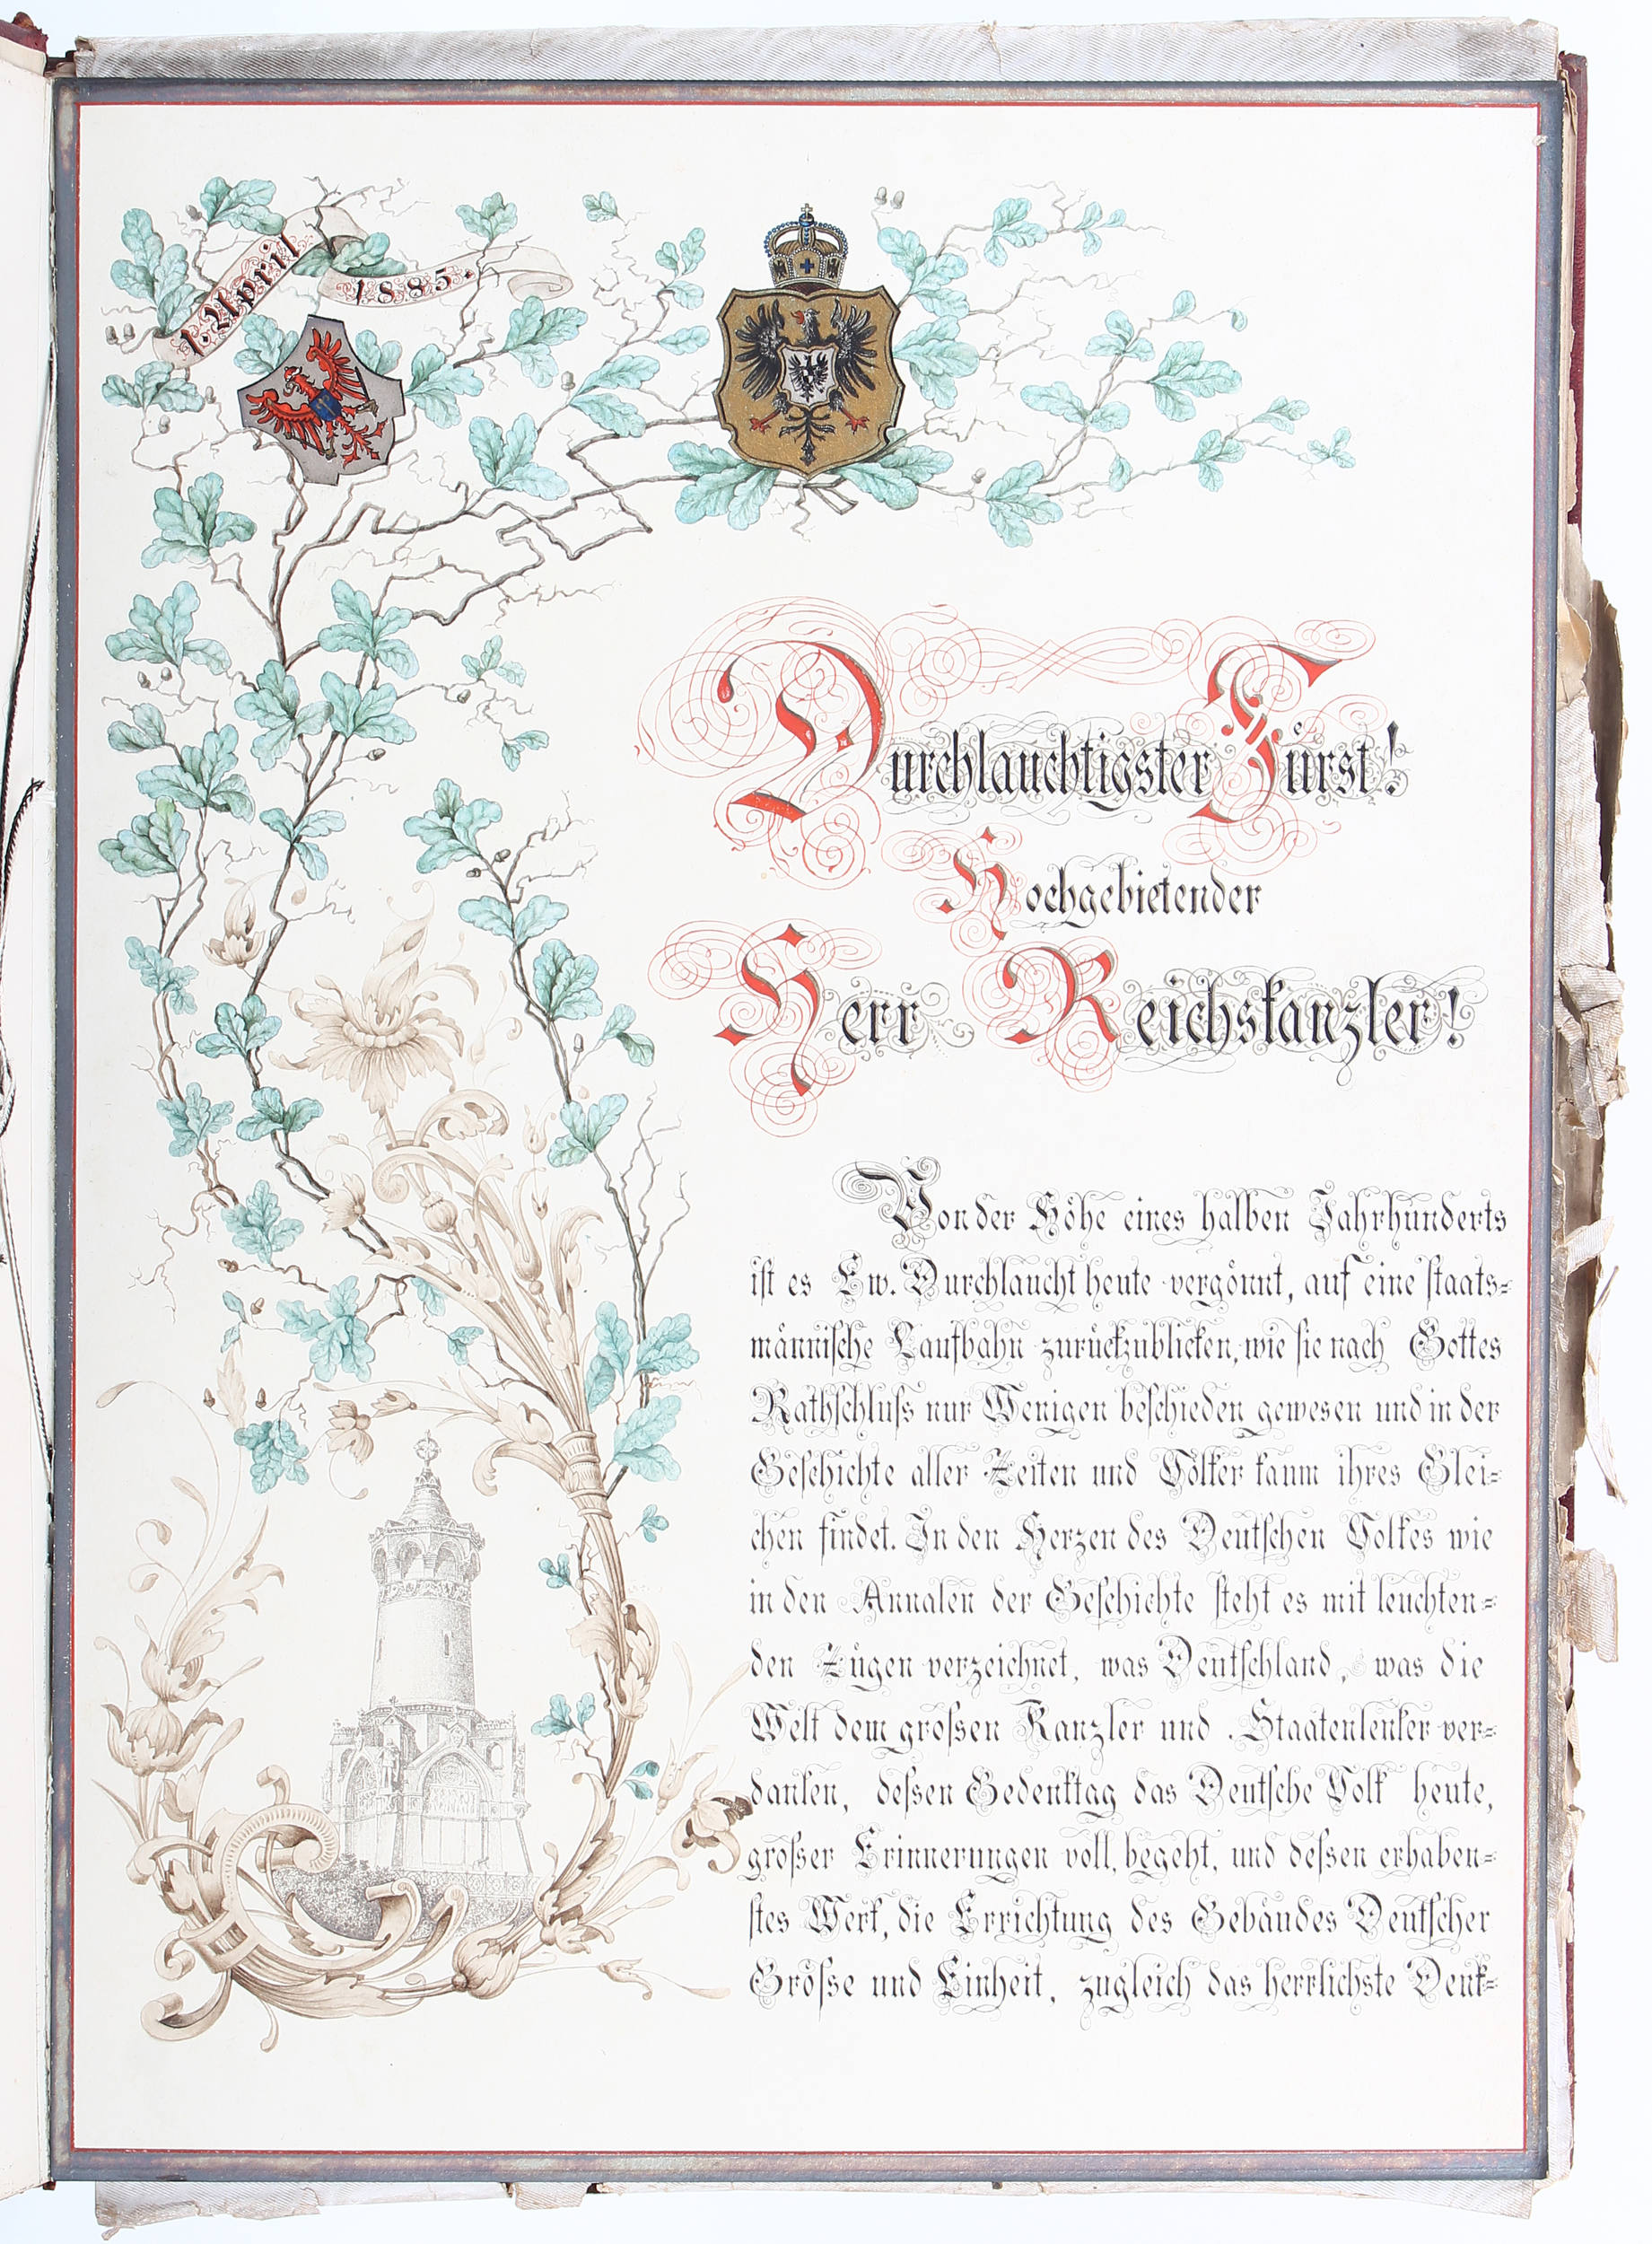 1. April 1885.
Durchlauchtigster Fürst!
Hochgebietender
Herr Reichskanzler!
Von der Höhe eines halben Jahrhunderts
ist es Ew. Durchlaucht heute vergönnt, auf eine staats=
männische Laufbahn zurückzublicken, wie sie nach Gottes
Rathschluss nur Wenigen beschieden gewesen und in der
Geschichte aller Zeiten und Völker kaum ihres Glei=
chen findet. In den Herzen des Deutschen Volkes wie
in den Annalen der Geschichte steht es mit leuchten=
den Zügen verzeichnet, was Deutschland, was die
Welt dem grossen Kanzler und Staatenlenker ver=
danken, dessen Gedenktag das Deutsche Volk heute,
grosser Erinnerungen voll, begeht, und dessen erhaben=
stes Werk, die Errichtung des Gebäudes Deutscher
Grösse und Einheit, zugleich das herrlichste Denk=